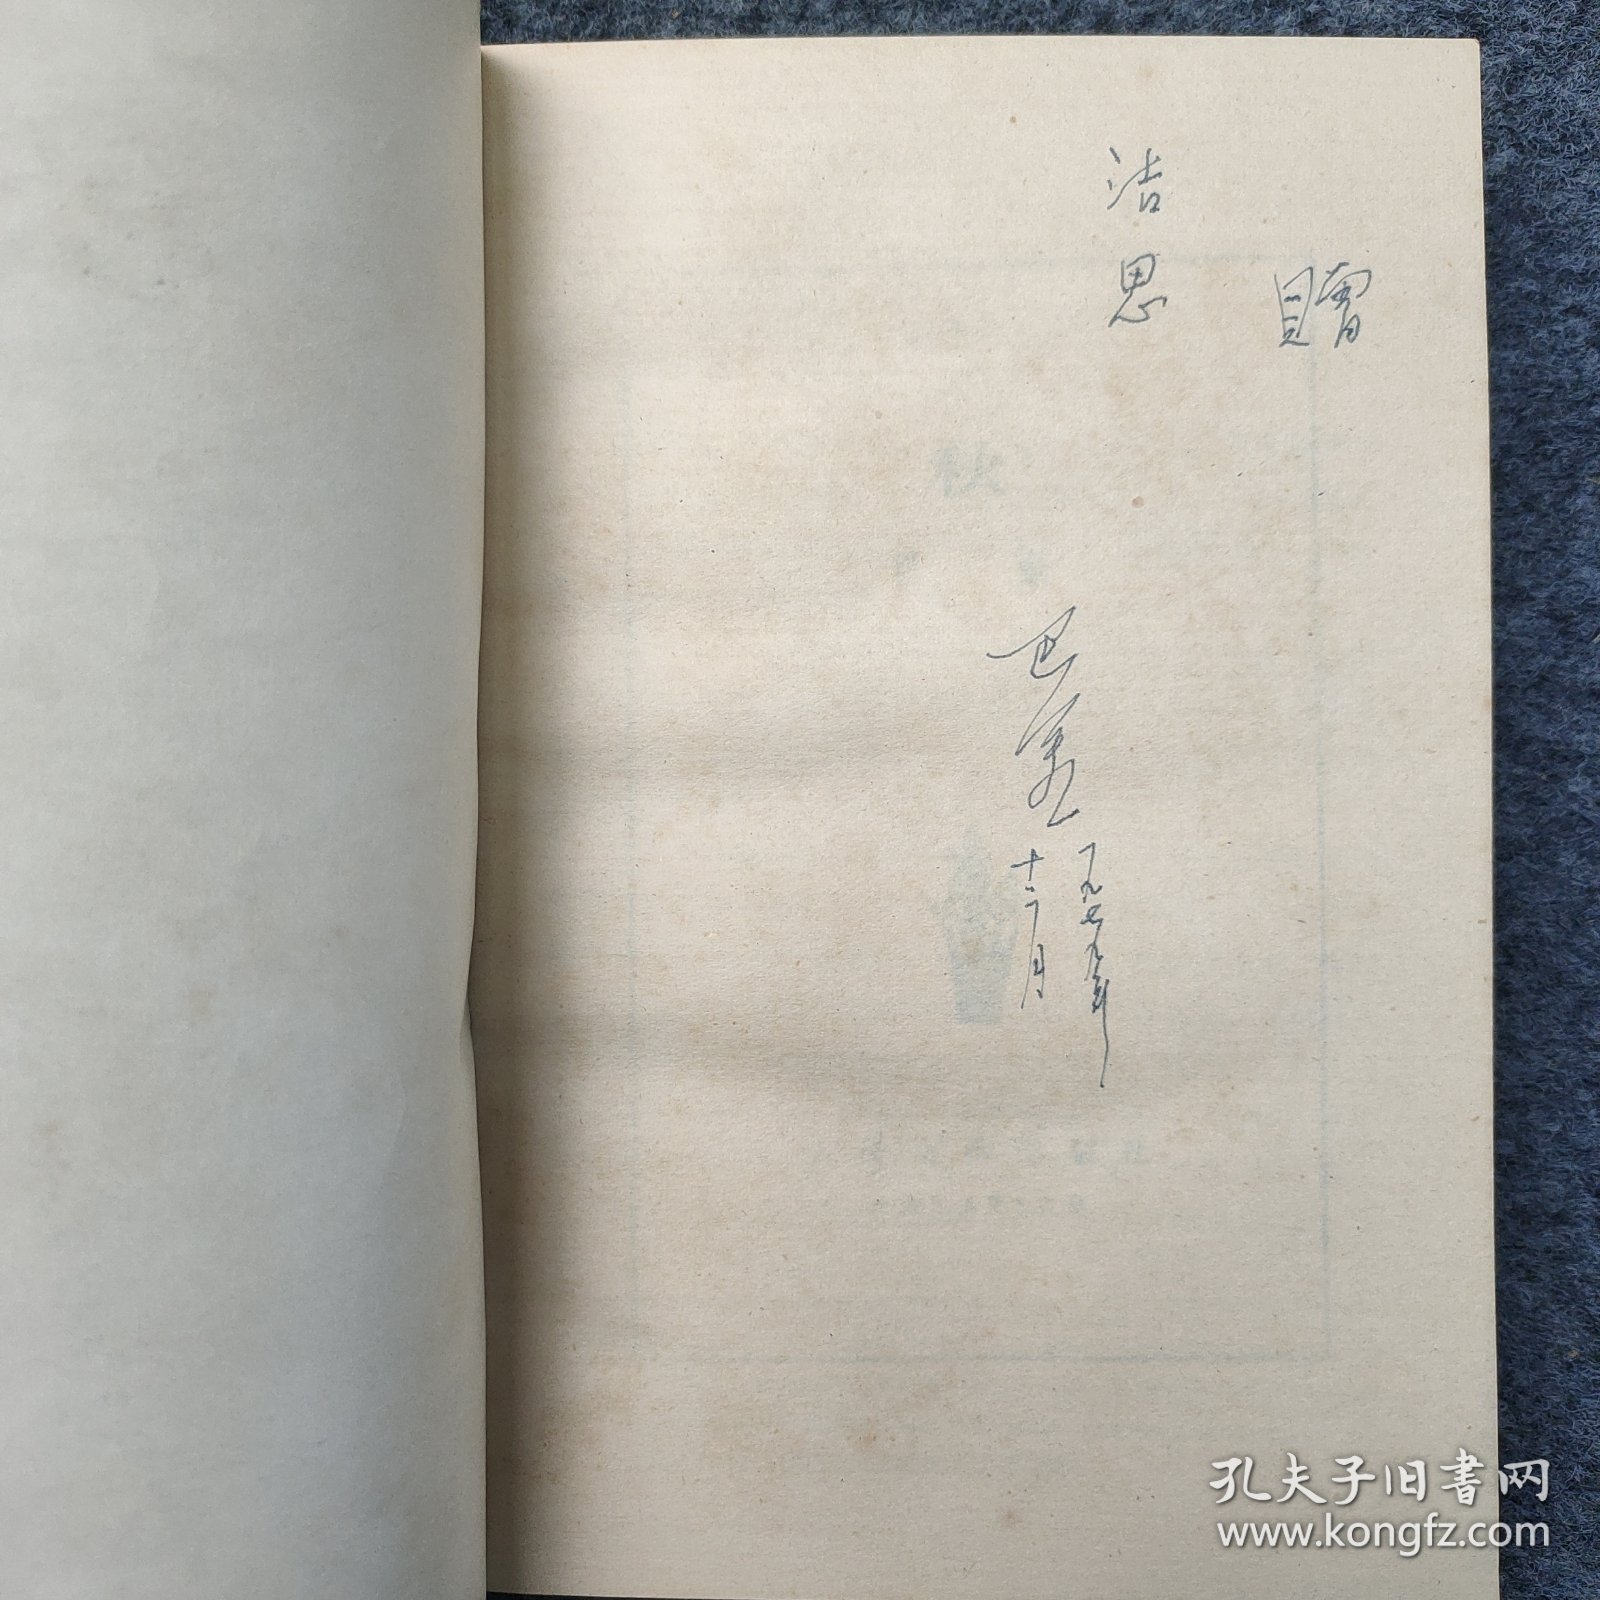 赠
洁思
巴金
一九七九年
十二月
孔夫子旧书网
www.kongfz.com